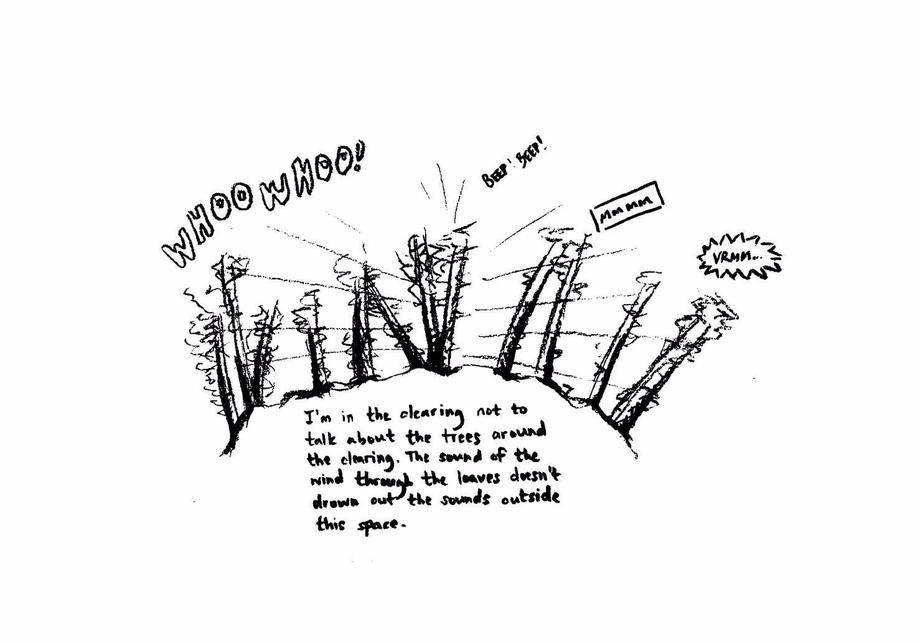 WHOO WHOO!
BEEP! BEEP!
Mmmmm
VRMM...
I'm in the clearing not to
talk about the trees around
the clearing. The sound of the
wind through the leaves doesn't
drown out the sounds outside
this space.